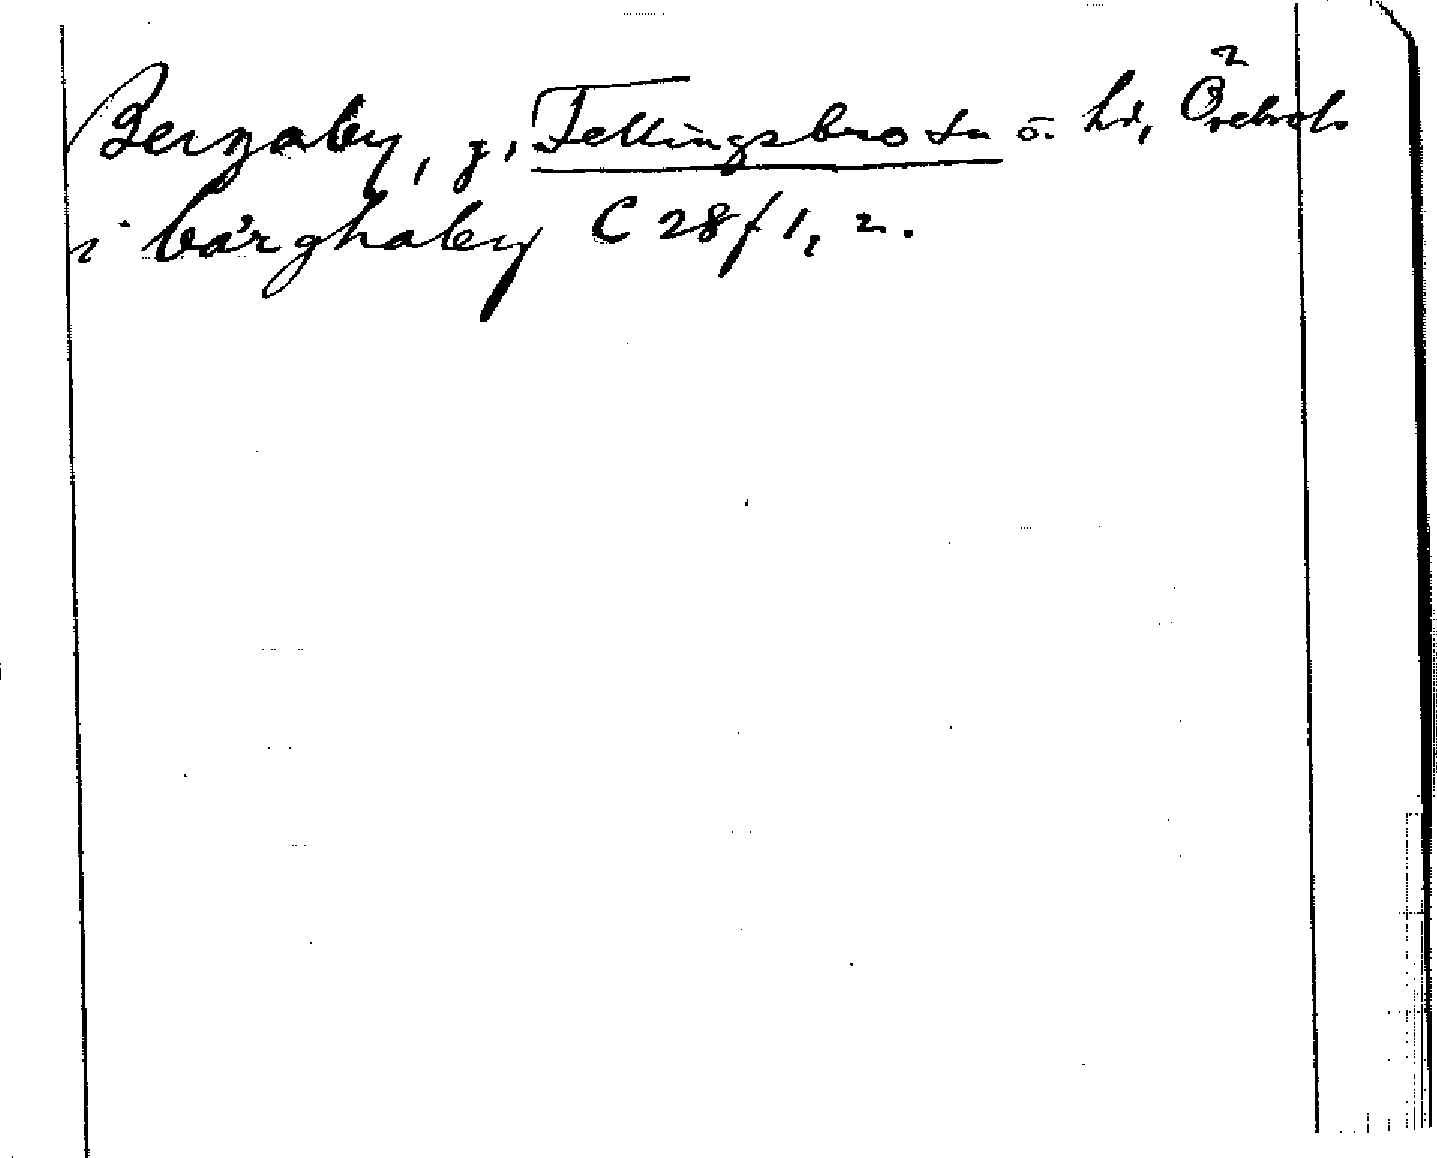 Bergaby, g, Fellingsbro sn o. hd, Örebro l.
i bärghaby C 28 f 1, 2.